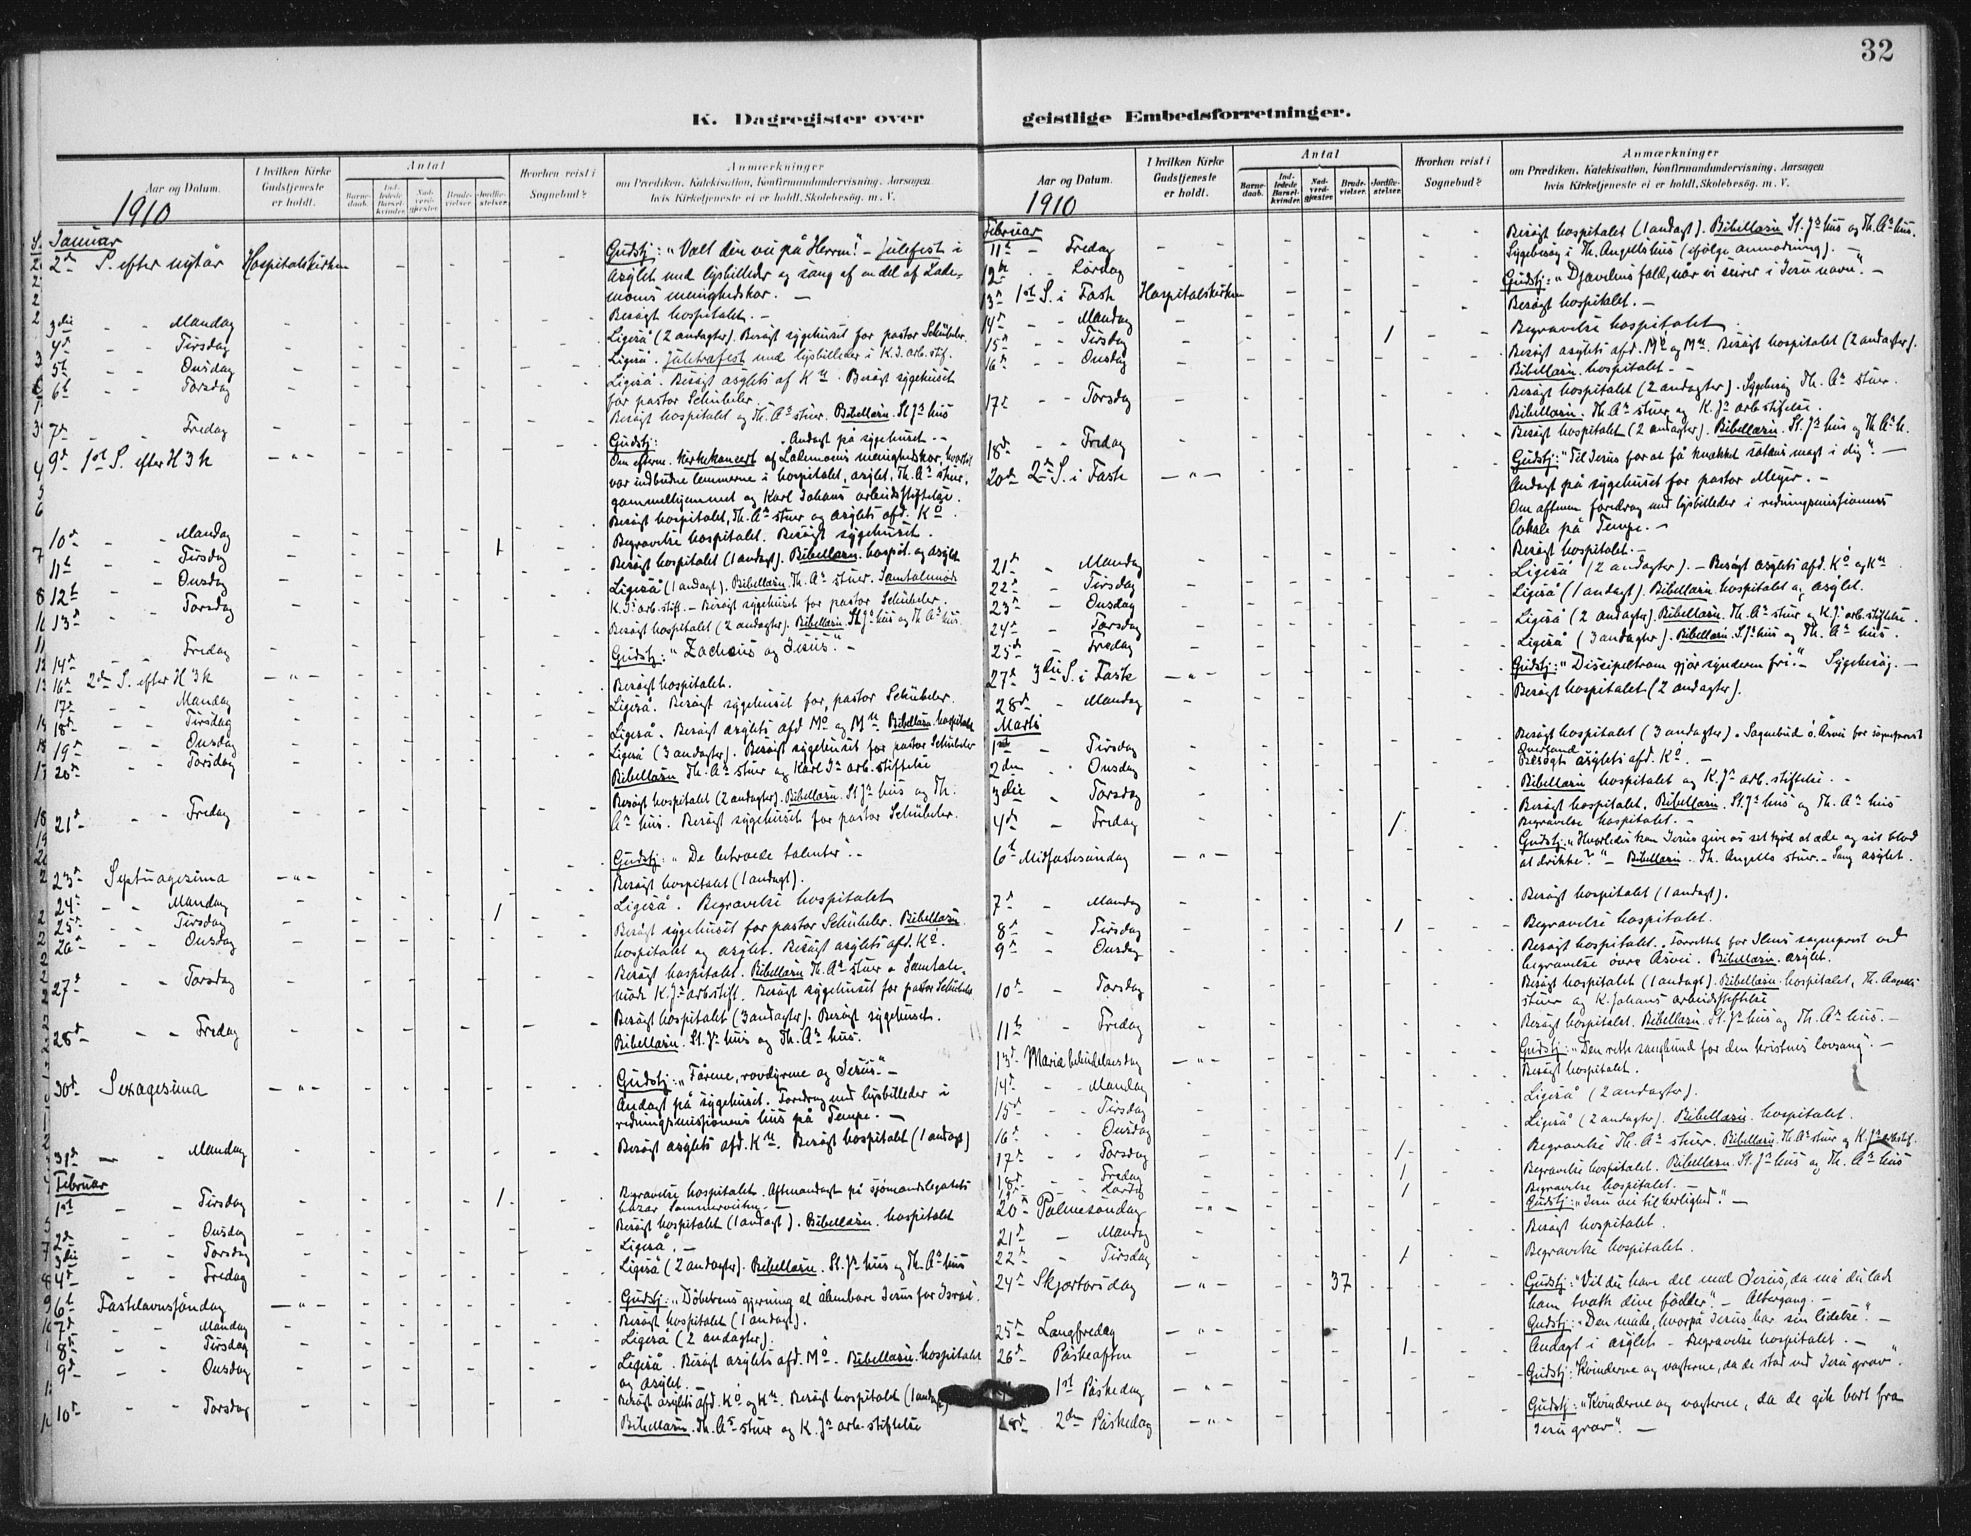 32
K. Dagregister over geistlige Embedsforretninger.
Aar og Datum.
I hvilken Kirke Gudstjeneste er holdt.
Antal
Barne-daab.
Ind-ledede Barsel-kvinder.
Nad-verds-gjæster.
Brude-vielser.
Jordfæ-stelser.
Hvorhen reist i Sognebud?
Anmærkninger
om Prædiken, Katekisation, Konfirmandundervisning, Aarsagen
hvis Kirketjeneste ei er holdt, Skolebesøg, m. V.
1910
Januar
2den S. efter nytår Hospitalskirken Gudstj: "Vælt din vei på Herren!" – Julefest i
asylet med lysbilleder og sang af en del af Lade-
moens menighedskor. –
3die " " Mandag Besøgt hospitalet. –
4de " " Tirsdag Ligeså (2 andagter). Besøgt sygehuset for pastor Schübeler.
5te " " Onsdag Ligeså. Juletræfest med lysbilleder i K. J. arb. stif.
6te " " Torsdag Ligeså. Besøgt asylets af Kn. Besøgt sygehuset
for pastor Schübeler.
7de " " Fredag Besøgt hospitalet og Th. As stuer. Bibellæsn. St. Js hus
9de 1ste S. efter H 3 k – " – Gudstj: Andagt på sygehuset. –
Om efterm. kirkekoncert af Lademoens menighedskor, hvortil
var indbudne lemmerne i hospitalet, asylet, Th. As stuer,
gammelhjemmet og Karl Johans arbeidsstiftelse.
10de " " Mandag Besøgt hospitalet, Th. As stuer og asylets afd. Ko.
11te " " Tirsdag 1 Begravelse hospitalet. Besøgt sygehuset.
12te " " Onsdag Besøgt hospitalet (1 andagt). Bibellæsn. hospit. og asylet
13de " " Torsdag Ligeså (1 andagt). Bibellæsn. Th. As stuer. Samtalemøde
K. Js arb. stift. – Besøgt sygehuset for pastor Schübeler.
14de " " Fredag Besøgt hospitalet (2 andagter). Bibellæsn. St. Js hus og Th. As hus.
16de 2den S. efter H 3 k – " – Gudstj: "Zachæus og Jesus." –
17de " " Mandag Besøgt hospitalet.
18de " " Tirsdag Ligeså. Besøgt sygehuset for pastor Schübeler.
19de " " Onsdag Ligeså. Besøgt asylets afd Mo og Mn. Bibellæsn. hospitalet
20de " " Torsdag Ligeså (3 andagter). Besøgt sygehuset for pastor Schübeler
Bibellæsn Th. As stuer og Karl Js arb. stiftelse
21de " " Fredag Besøgt hospitalet (2 andagter). Bibellæsn. St. Js hus og Th.
As hus. Besøgt sygehuset for pastor Schübeler.
23de Septuagesima – " – Gudstj: "De betroede talenter". –
24de " " Mandag Besøgt hospitalet (1 andagt).
25de " " Tirsdag 1 Ligeså. Begravelse hospitalet
26de " " Onsdag Besøgt sygehuset for pastor Schübeler. Bibellæsn.
hospitalet og asylet. Besøgt asylets afd. Ko.
27de " " Torsdag Besøgt hospitalet. Bibellæsn Th. As stuer – Samtale-
møde K. Js arb. stift. Besøgt sygehuset for pastor Schübeler
28de " " Fredag Besøgt hospitalet (3 andagter). Besøgt sygehuset.
Bibellæsn. St. Js hus og Th. As hus.
30te Sexagesima – " – Gudstj: "Fårene, rovdyrene og Jesus." –
Andagt på sygehuset. Foredrag med lysbilleder i
redningsmissionens hus på Tempe. –
31te " " Mandag Besøgt asylets afd. Kn. Besøgt hospitalet (1 andagt)
Februar
1ste " " Tirsdag 1 Begravelse hospitalet. Aftenandagt på sjømandslegatets
bazar
2den " " Onsdag Besøgt hospitalet (1 andagt). Bibellæsn. hospitalet
3die " " Torsdag Ligeså. –
4de " " Fredag Ligeså (2 andagter). Bibellæsn. St. Js hus og Th. As hus
6te Fastelavnssøndag – " – Gudstj: "Døberens gjerning at åbenbare Jesus for Israel".
7de " " Mandag Besøgt hospitalet (1 andagt).
8de " " Tirsdag Ligeså (2 andagter).
9de " " Onsdag Ligeså. Besøgt asylets afd. Mo. Bibellæsn. hospitalet
og asylet. –
10de " " Torsdag Besøgt asylets afd. Ko og Kn. Besøgt hospitalet (1 andagt)
Bibellæsn. Th. As stuer og K. Js arb. stiftelse
Aar og Datum.
I hvilken Kirke Gudstjeneste er holdt.
Antal
Barne-daab.
Ind-ledede Barsel-kvinder.
Nad-verd-gjæster.
Brude-vielser.
Jordfæ-stelser.
Hvorhen reist i Sognebud?
Anmærkninger
om Prædiken, Katekisation, Konfirmandundervisning, Aarsagen
hvis Kirketjeneste ei er holdt, Skolebesøg, m. V.
1910
Februar
11te – Fredag Besøgt hospitalet (1 andagt). Bibellæsn St. Js hus og Th. As hus.
12te – Lørdag Sygebesøg i Th. Angells hus (ifølge anmodning). –
13de 1ste S. i Faste Hospitalskirken Gudstj: "Djævelens fald, når vi seirer i Jesu navn". –
14de " " Mandag Besøgt hospitalet. –
15de " " Tirsdag 1 Begravelse hospitalet
16de " " Onsdag Besøgt asylets afd. Mo og Mn. Besøgt hospitalet (2 andagter).
Bibellæsn. hospitalet. –
17de " " Torsdag Besøgt hospitalet (2 andagter). Sygebesøg Th. As stuer.
Bibellæsn. Th. As stuer og K. Js arb. stiftelse.
18de " " Fredag Besøgt hospitalet (2 andagter). Bibellæsn. St. Js hus og Th. As h.
20de 2den S. i Faste – " – Gudstj: "Til Jesus for at få knækket satans magt i dig". –
Andagt på sygehuset for pastor Meyer. –
Om aftenen foredrag med lysbilleder i redningsmissionens
lokale på Tempe. –
21de " Mandag Besøgt hospitalet. –
22de " Tirsdag Ligeså (2 andagter). – Besøgt asylets afd. Ko og Kn
23de " Onsdag Ligeså (1 andagt). Bibellæsn. hospitalet og asylet.
24de " Torsdag Ligeså (2 andagter). Bibellæsn. Th. As stuer og K. J. arb. stiftelse.
25de " Fredag Ligeså (3 andagter). Bibellæsn. St. Js hus og Th. As hus.
27de 3die S. i Faste – " – Gudstj: "Discipeltroen gjør synderen fri." – Sygebesøg. –
28de " Mandag Besøgt hospitalet (2 andagter).
Marts
1ste " Tirsdag Besøgt hospitalet (3 andagter). Sognebud ø. Åsvei for sogneprest
2den " Onsdag Besøgt asylets afd. Ko. –
3die " Torsdag Bibellæsn hospitalet og K. Js arb. stiftelse. –
4de " Fredag 1 Besøgt hospitalet. Bibellæsn. St. Js hus og Th. As hus
Begravelse hospitalet. –
6te Midfastesøndag – " – Gudstj: "Hvorledes kan Jesus give os sit kjød at æde og sit blod
at drikke?" – Bibellæsn. Th. Angells stuer. – Sang asylet.
7de " Mandag Besøgt hospitalet (1 andagt).
8de " Tirsdag 1 Begravelse hospitalet.
9de " Onsdag Besøgt hospitalet. Forrettet for Ilens sogneprest ved
begravelse øvre Åsvei. Bibellæsn. asylet.
10de " Torsdag Besøgt hospitalet (1 andagt). Bibellæsn. hospitalet, Th. Angells
stuer og K. Johans arbeidsstiftelse
11te " Fredag Besøgt hospitalet. Bibellæsn. St. Js hus og Th. As hus. –
13de Maria bebudelsesdag – " – Gudstj: "Den rette sangbund for den kristnes lovsang". –
14de " Mandag Besøgt hospitalet.
15de " Tirsdag Ligeså (2 andagter).
16de " Onsdag Ligeså (2 andagter). Bibellæsn. hospitalet.
17de " Torsdag 1 Begravelse Th. As stuer. Bibellæsn. Th. As stuer og K. Js arbstif.
18de " Fredag 1 Begravelse hospitalet. Bibellæsn. St. Js hus og Th. As hus
19de " Lørdag 1 Begravelse hospitalet. –
20de Palmesøndag – " – Gudstj: "Jesu vei til herlighed". –
21de " Mandag Besøgt hospitalet.
22de " Tirsdag 1 Begravelse hospitalet.
24de Skjærtorsdag – " – 37 Gudstj: "Vil du have del med Jesus, da må du lade
ham tvætte dine fødder". – Altergang. –
25de Langfredag – " – Gudstj: "Den måde, hvorpå Jesus bar sin lidelse". –
26de Påskeaften 1 Andagt i asylet – Begravelse hospitalet. –
1ste Påskedag – " – Gudstj: "Kvinderne og vogterne, da de stod ved Jesu grav".
28de 2den Påskedag – " – Gudstj: "Kvinderne og vogterne, da de gik bort fra
Jesu grav". –